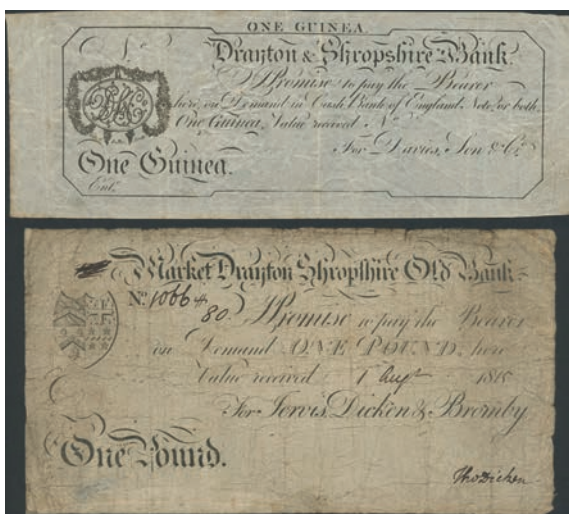 ONE GUINEA
Drayton & Shropshire Bank.
I Promise to pay the Bearer
here, on Demand in Cash Bank of England Notes or both
One Guinea, Value received No
For Davies, Son & Co.
One Guinea.
Ent.
Market Drayton Shropshire Old Bank
No. 10664
80. I Promise to pay the Bearer
on Demand ONE POUND, here
Value received 1 Augt 1815
For Jervis, Dicken & Bromby
One Pound.
Tho Dicken